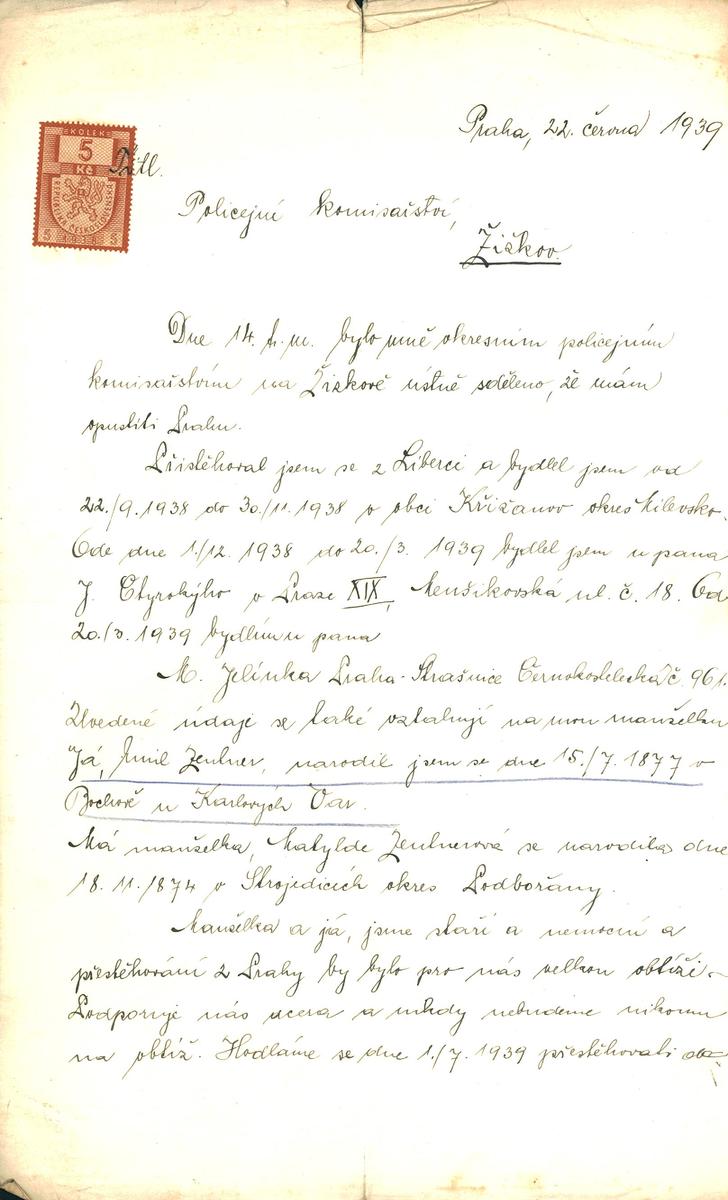 Praha, 22. června 1939
KOLEK
5
Kč
REPUBLIKA ČESKOSLOVENSKÁ
5 5
Policejní komisařství,
Žižkov.
Dne 14. t. m. bylo mně okresním policejním
komisařstvím na Žižkově ústně sděleno, že mám
opustiti Prahu.
Přistěhoval jsem se z Liberci a bydlel jsem od
22./9. 1938 do 30./11. 1938 v obci Křižanov okres Milevsko.
Ode dne 1./12. 1938 do 20./3. 1939 bydlel jsem u pana
J. Čtyrokýho v Praze XIX, Menšikovská ul. č. 18. Od
20./3. 1939 bydlím u pana
M. Jelínka Praha-Strašnice Černokostelecká č. 961.
Uvedené údaje se také vztahují na mou manželku
Já, Emil Zentner, narodil jsem se dne 15./7. 1877 v
Bochově u Karlových Var.
Má manželka, Matylde Zentnerová se narodila dne
18. 11./1874 v Strojedicích okres Podbořany.
Manželka a já, jsme staří a nemocní a
přestěhování z Prahy by bylo pro nás velkou obtíží.
Podporuje nás dcera a nikdy nebudeme nikomu
na obtíž. Hodláme se dne 1./7. 1939 přestěhovati do